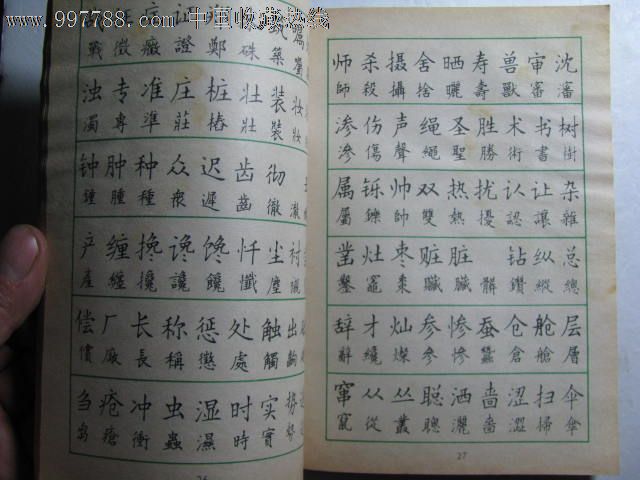 www.997788.com 中国收藏热线
浊 专 准 庄 桩 壮 装 妆
濁 專 準 莊 樁 壯 裝 妝
钟 肿 种 众 迟 齿 彻
鍾 腫 種 衆 遲 齒 徹
产 缠 搀 谗 馋 忏 尘 衬
產 纏 攙 讒 饞 懺 塵 襯
偿 厂 长 称 惩 处 触 出
償 廠 長 稱 懲 處 觸 齣
刍 疮 冲 虫 湿 时 实 势
芻 瘡 衝 蟲 濕 時 實 勢
师 杀 摄 舍 晒 寿 兽 审 沈
師 殺 攝 捨 曬 壽 獸 審 瀋
渗 伤 声 绳 圣 胜 术 书 树
滲 傷 聲 繩 聖 勝 術 書 樹
属 铄 帅 双 热 扰 认 让 杂
屬 鑠 帥 雙 熱 擾 認 讓 雜
凿 灶 枣 赃 脏 钻 纵 总
鑿 竈 棗 贜 臟 髒 鑽 縱 總
辞 才 灿 参 惨 蚕 仓 舱 层
辭 纔 燦 參 慘 蠶 倉 艙 層
窜 从 丛 聪 洒 啬 涩 扫 伞
竄 從 叢 聰 灑 嗇 澀 掃 傘
27